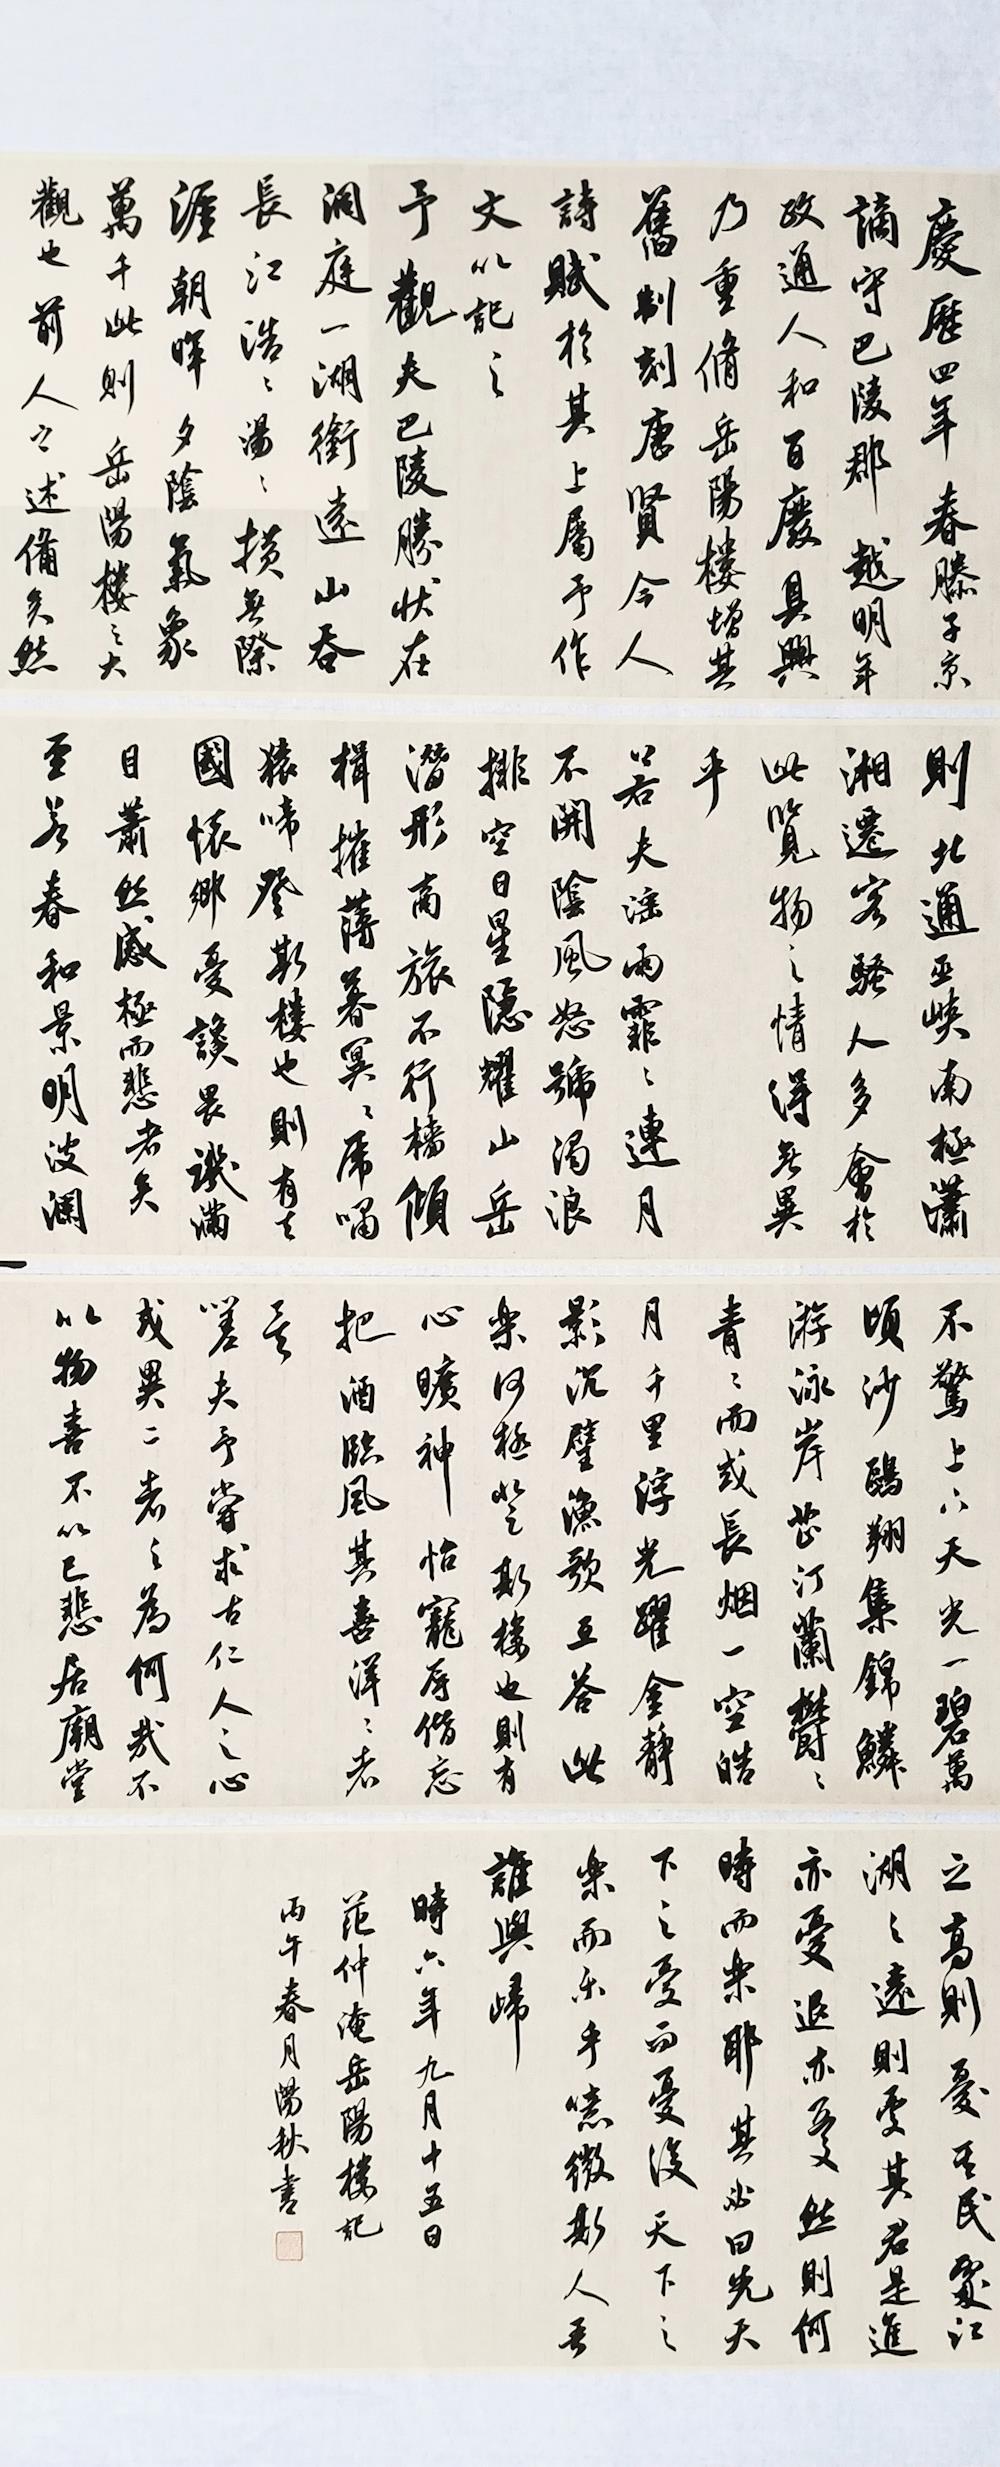 慶歷四年春滕子京
謫守巴陵郡越明年
政通人和百廢具興
乃重脩岳陽樓增其
舊制刻唐賢今人
詩賦於其上屬予作
文以記之
予觀夫巴陵勝狀在
洞庭一湖銜遠山吞
長江浩〻湯〻橫無際
涯朝暉夕陰氣象
萬千此則岳陽樓之大
觀也前人之述備矣然
則北通巫峽南極瀟
湘遷客騷人多會於
此覽物之情得無異
乎
若夫淫雨霏〻連月
不開陰風怒號濁浪
排空日星隱耀山岳
潛形商旅不行檣傾
楫摧薄暮冥〻虎嘯
猿啼登斯樓也則有去
國懷鄉憂讒畏譏滿
目蕭然感極而悲者矣
至若春和景明波瀾
不驚上下天光一碧萬
頃沙鷗翔集錦鱗
游泳岸芷汀蘭鬱〻
青〻而或長烟一空皓
月千里浮光躍金靜
影沉璧漁歌互答此
樂何極登斯樓也則有
心曠神怡寵辱偕忘
把酒臨風其喜洋〻者
矣
嗟夫予嘗求古仁人之心
或異二者之為何哉不
以物喜不以己悲居廟堂
之高則憂其民處江
湖之遠則憂其君是進
亦憂退亦憂然則何
時而樂耶其必曰先天
下之憂而憂後天下之
樂而樂乎噫微斯人吾
誰與歸
時六年九月十五日
范仲淹岳陽樓記
丙午春月陽秋書